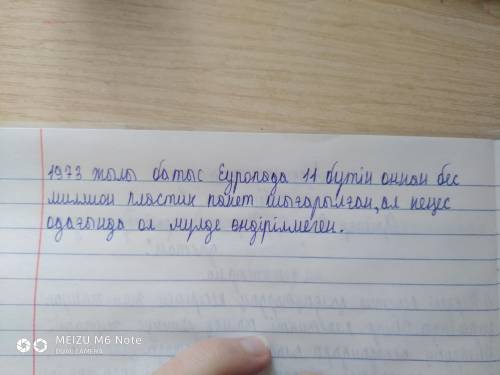 1973 жылы батыс Еуропада 11 бүтін оннан бес
миллион пластик пакет шығарылған, ал кеңес
одағында ол мүлде өндірілмеген.
MEIZU M6 Note
DUAL CAMERA